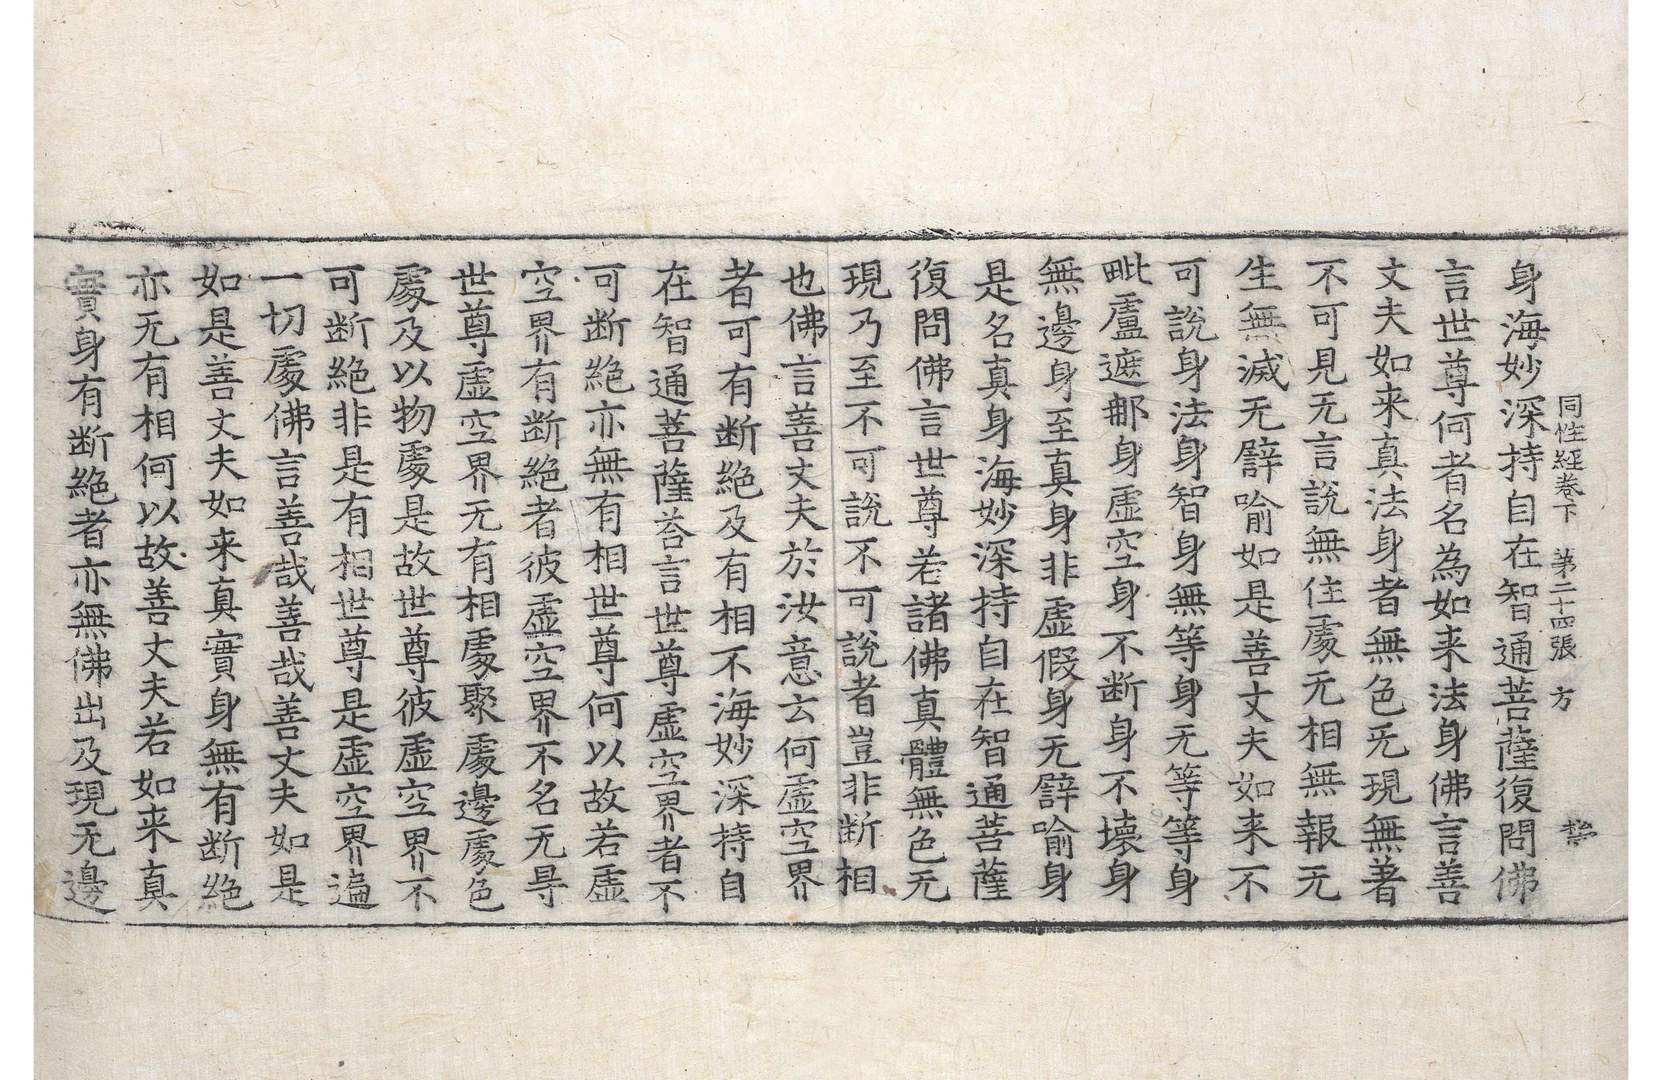 同性経卷下　第二十四張　方
身海妙深持自在智通菩薩復問佛
言世尊何者名為如来法身佛言善
丈夫如来真法身者無色无現無著
不可見无言說無住處无相無報无
生無滅无譬喻如是善丈夫如来不
可說身法身智身無等身无等等身
毗盧遮那身虛空身不断身不壞身
無邊身至真身非虛假身无譬喻身
是名真身海妙深持自在智通菩薩
復問佛言世尊若諸佛真體無色无
現乃至不可說不可說者豈非断相
也佛言善丈夫於汝意云何虛空界
者可有断絕及有相不海妙深持自
在智通菩薩荅言世尊虛空界者不
可断絕亦無有相世尊何以故若虛
空界有断絕者彼虛空界不名无㝵
世尊虛空界无有相處聚處邊處色
處及以物處是故世尊彼虛空界不
可断絕非是有相世尊是虛空界遍
一切處佛言善哉善哉善丈夫如是
如是善丈夫如来真實身無有断絕
亦无有相何以故善丈夫若如来真
實身有断絕者亦無佛出及現无邊